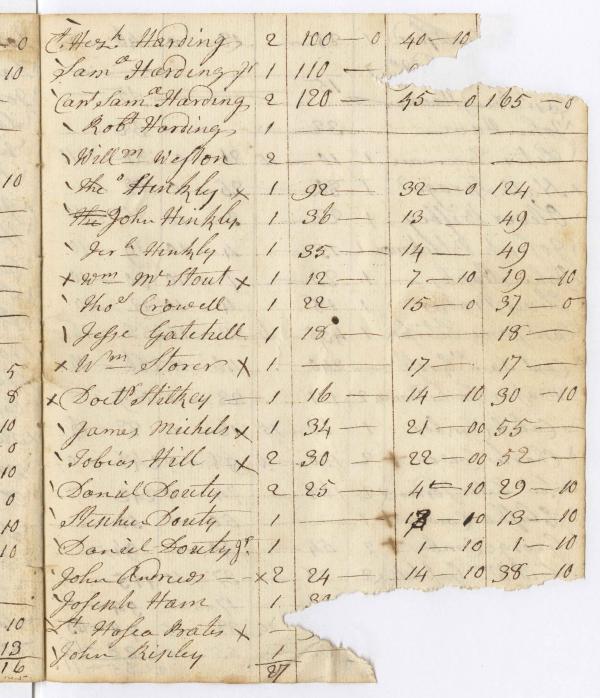 Hezh Harding 2 100 — 0 40 — 10
Sam Harding Jr 1 110 —
Capt Sam Harding 2 120 — 45 — 0 165 — 0
Robt Harding 1 —
Willm Weston 2 —
Tho Hinkly x 1 92 — 32 — 0 124 —
The John Hinkly 1 36 — 13 — 49 —
Jerh Hinkly 1 35 — 14 — 49
x Wm Mc Stout x 1 12 — 7 — 10 19 — 10
Thos Crowell 1 22 15 — 0 37 — 0
Jesse Gatchell 1 18 — — 18 —
x Wm Storer x 1 — 17 — 17 —
x Doctr Stilkey — 1 16 — 14 — 10 30 — 10
James Michels x 1 34 — 21 — 00 55 —
Tobias Hill x 2 30 — 22 — 00 52 —
Daniel Douty 2 25 — 4 — 10 29 — 10
Stephen Douty 1 — 13 — 10 13 — 10
Daniel Douty Jr. 1 — 1 — 10 1 — 10
John Andrews — x 2 24 — 14 — 10 38 — 10
Joseph Ham 1
Hosea Bates x —
John Ripley 1
27
0
10
10
5
8
10
0
10
0
10
10
10
13
16